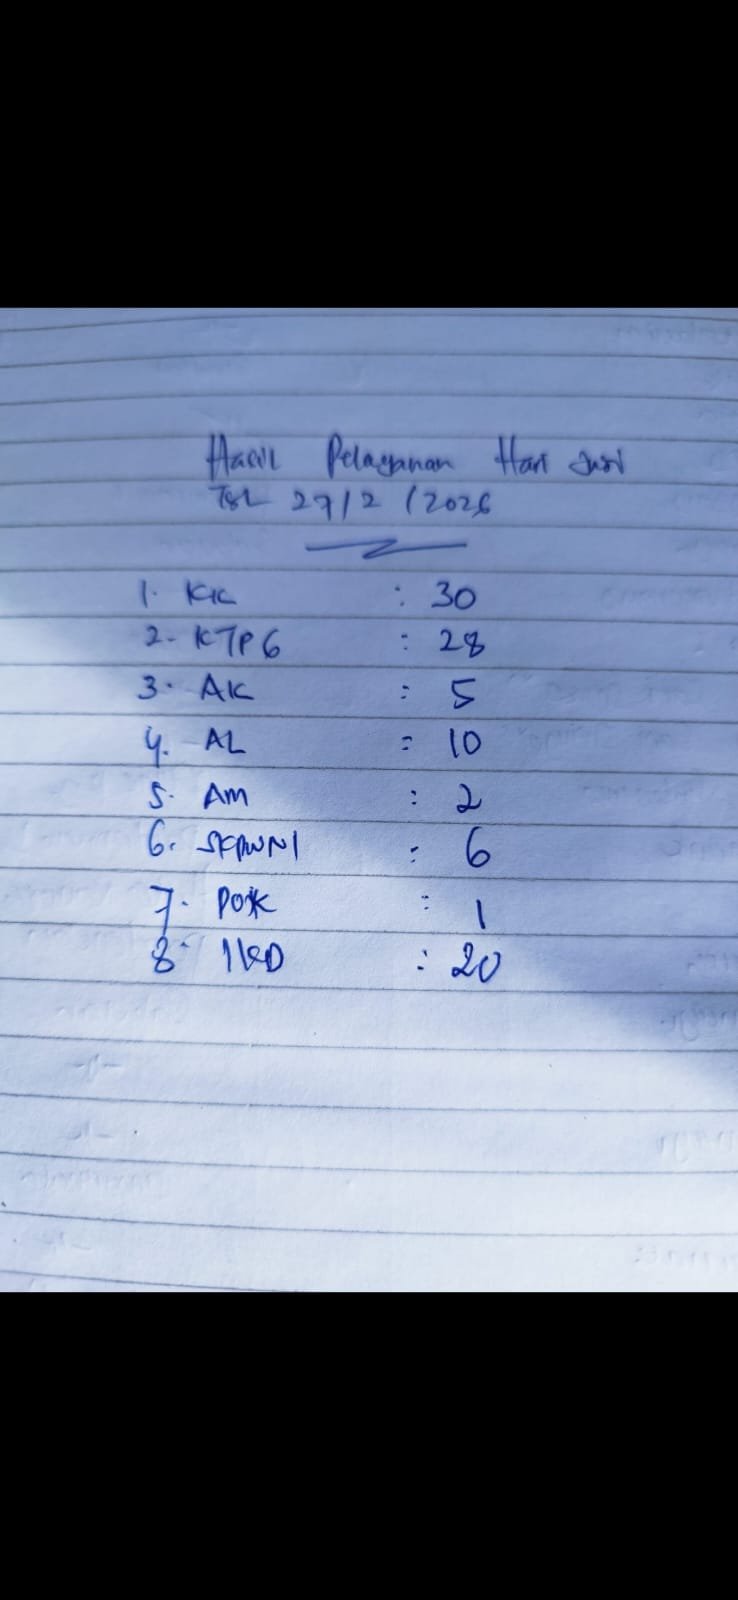 Hasil Pelayanan Hari Ini
Tgl 27/2/2026
1. KK : 30
2. KTP6 : 28
3. AK : 5
4. AL : 10
5. AM : 2
6. SKPWNI : 6
7. POK : 1
8. IKD : 20